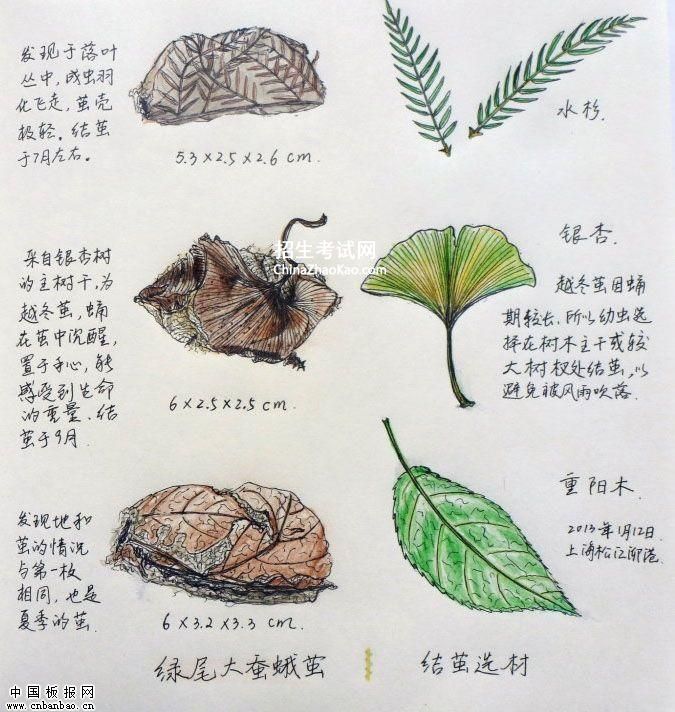 发现于落叶
丛中,成虫羽
化飞走,茧壳
极轻。结茧
于7月左右。
5.3×2.5×2.6 cm.
水杉.
采自银杏树
的主树干,为
越冬茧,蛹
在茧中沉醒,
置于手心,能
感受到生命
的重量.结
茧于9月.
6×2.5×2.5 cm.
银杏.
越冬茧因蛹
期较长,所以幼虫选
择在树木主干或较
大树杈处结茧,以
避免被风雨吹落.
发现地和
茧的情况
与第一枚
相同,也是
夏季的茧.
6×3.2×3.3 cm.
重阳木.
2013年1月12日.
上海松江
绿尾大蚕蛾茧
结茧选材
招生考试网
ChinaZhaoKao.com
中国板报网
www.cnbanbao.cn